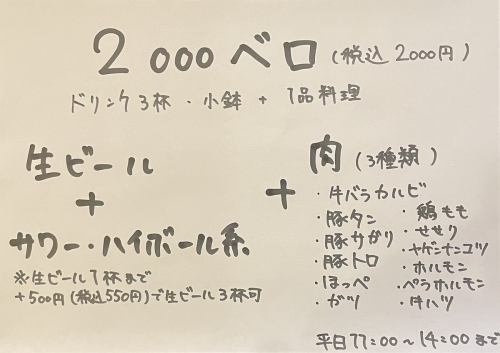 2000ベロ(税込2000円)
ドリンク3杯・小鉢+1品料理
生ビール
+
サワー・ハイボール系
※生ビール1杯まで
+500円(税込550円)で生ビール3杯可
+
肉(3種類)
・牛バラカルビ
・豚タン
・豚サガリ
・豚トロ
・ほっぺ
・ガツ
・鶏もも
・せせり
・ヤゲンナンコツ
・ホルモン
・ペラホルモン
・牛ハツ
平日11:00~14:00まで